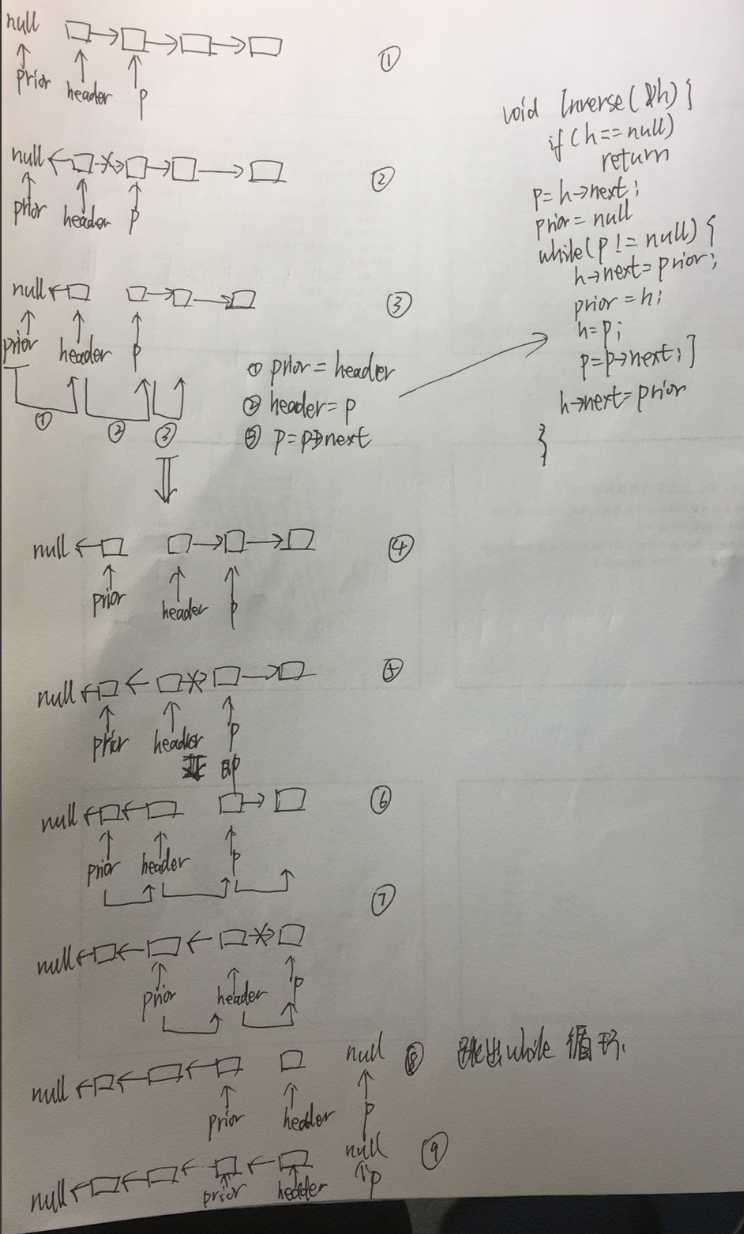 null
prior header p
①
null
prior header p
②
null
prior header p
③
① ② ③
① prior = header
② header = p
③ p = p→next
void Inverse(&h) {
if (h==null)
return
p=h→next;
prior = null
while(p != null) {
h→next=prior;
prior = h;
h=p;
p=p→next; }
h→next=prior
}
null
④
prior header p
null
⑤
prior header p
null
⑥
prior header p
⑦
null
prior header p
null null ⑧ 跳出while 循环.
prior header p
null null ⑨
prior header p